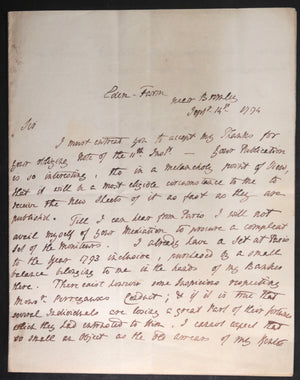 Eden-Farm
near Bromley
Sept. 14th 1794
Sir
I must entreat you to accept my Thanks for
your obliging Note of the 11th Inst. — Your Publication
is so interesting, tho in a melancholy point of View,
that it will be a most eligible circumstance to me to
receive the new Sheets of it as fast as they are
published. Till I can hear from Paris I will not
avail myself of your Mediation to procure a compleat
Set of the Moniteurs. I already have a Set at Paris
to the Year 1792 inclusive, purchased by a small
balance belonging to me in the hands of my Banker
there. There exist however some suspicions respecting
Monsr. Perregaux's Conduct; & if it is true that
several Individuals are losing a great Part of their fortunes
which they had entrusted to Him, I cannot expect that
so small an Object as the old arrears of my